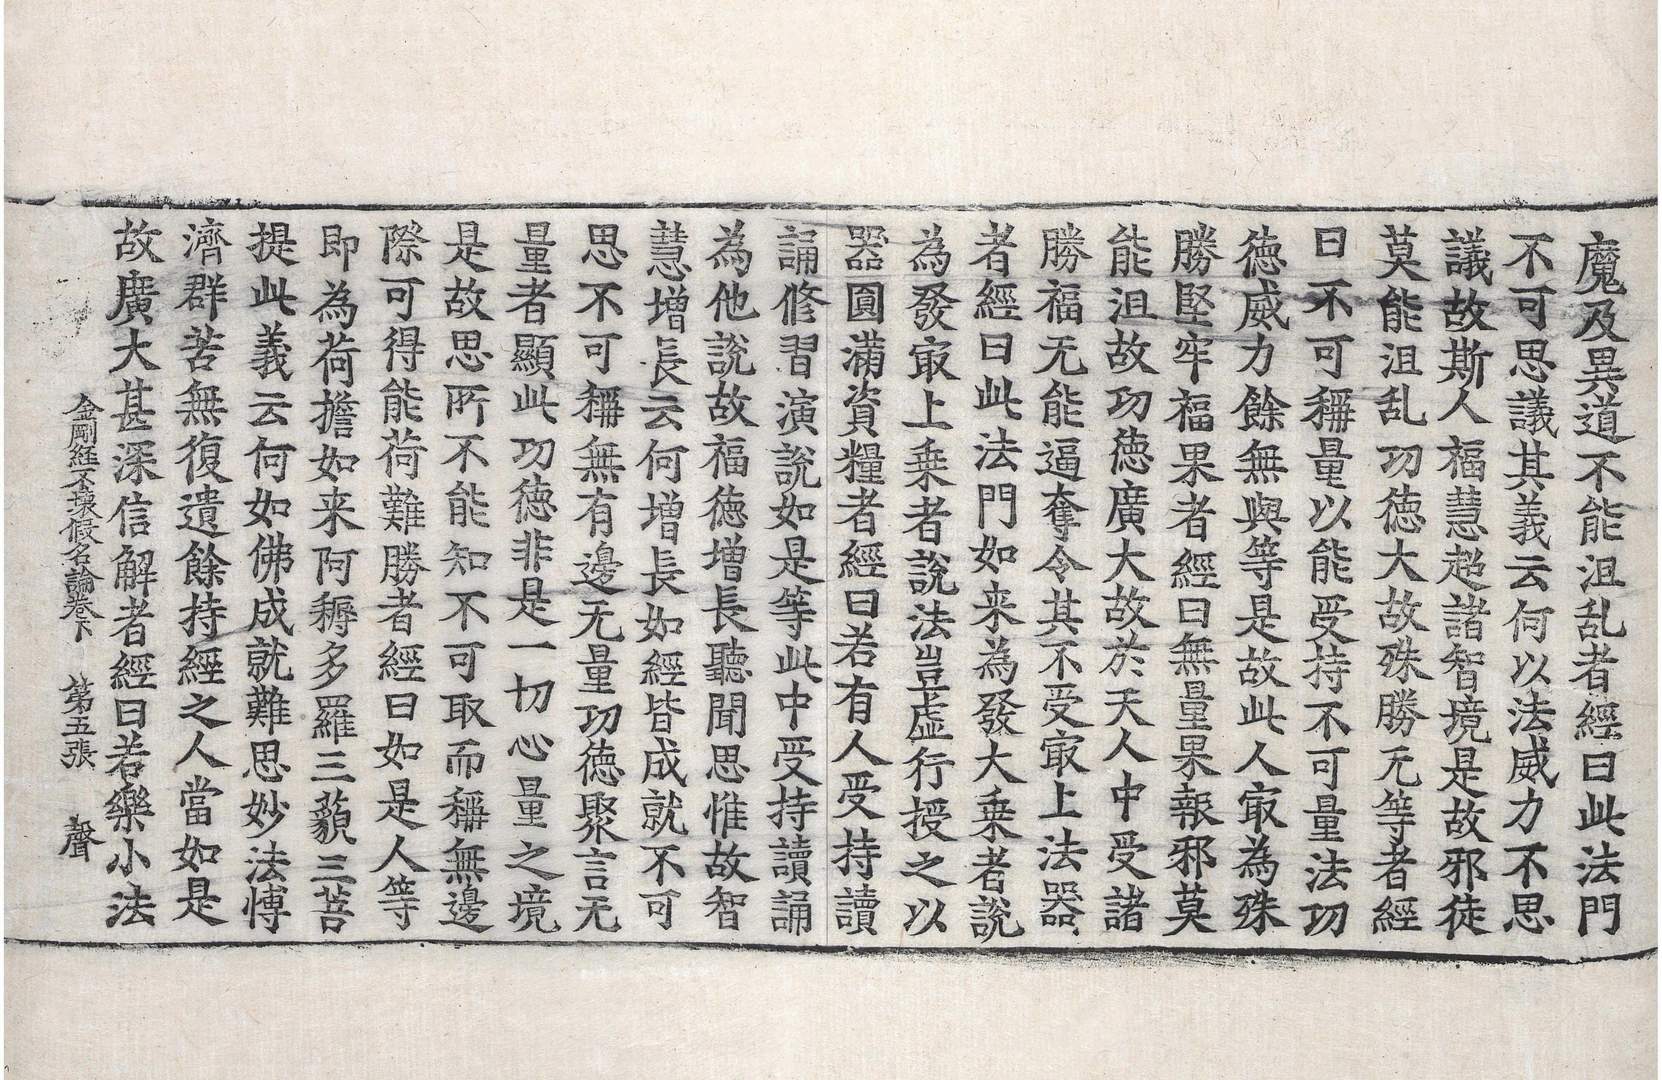 魔及異道不能沮乱者經曰此法門
不可思議其義云何以法威力不思
議故斯人福慧超諸智境是故邪徒
莫能沮乱功徳大故殊勝无等者經
曰不可稱量以能受持不可量法功
徳威力餘無與等是故此人㝡為殊
勝堅牢福果者經曰無量果報邪莫
能沮故功徳廣大故於天人中受諸
勝福无能逼奪令其不受㝡上法器
者經曰此法門如来為發大乗者說
為發㝡上乗者說法豈虚行授之以
器圓滿資糧者經曰若有人受持讀
誦修習演說如是等此中受持讀誦
為他說故福徳增長聽聞思惟故智
慧增長云何增長如經皆成就不可
思不可稱無有邊无量功德聚言无
量者顯此功德非是一切心量之境
是故思所不能知不可取而稱無邊
際可得能荷難勝者經曰如是人等
即為荷擔如来阿耨多羅三藐三菩
提此義云何如佛成就難思妙法愽
濟群苦無復遺餘持經之人當如是
故廣大甚深信解者經曰若樂小法
金剛經不壞假名論卷下 第五張 聲